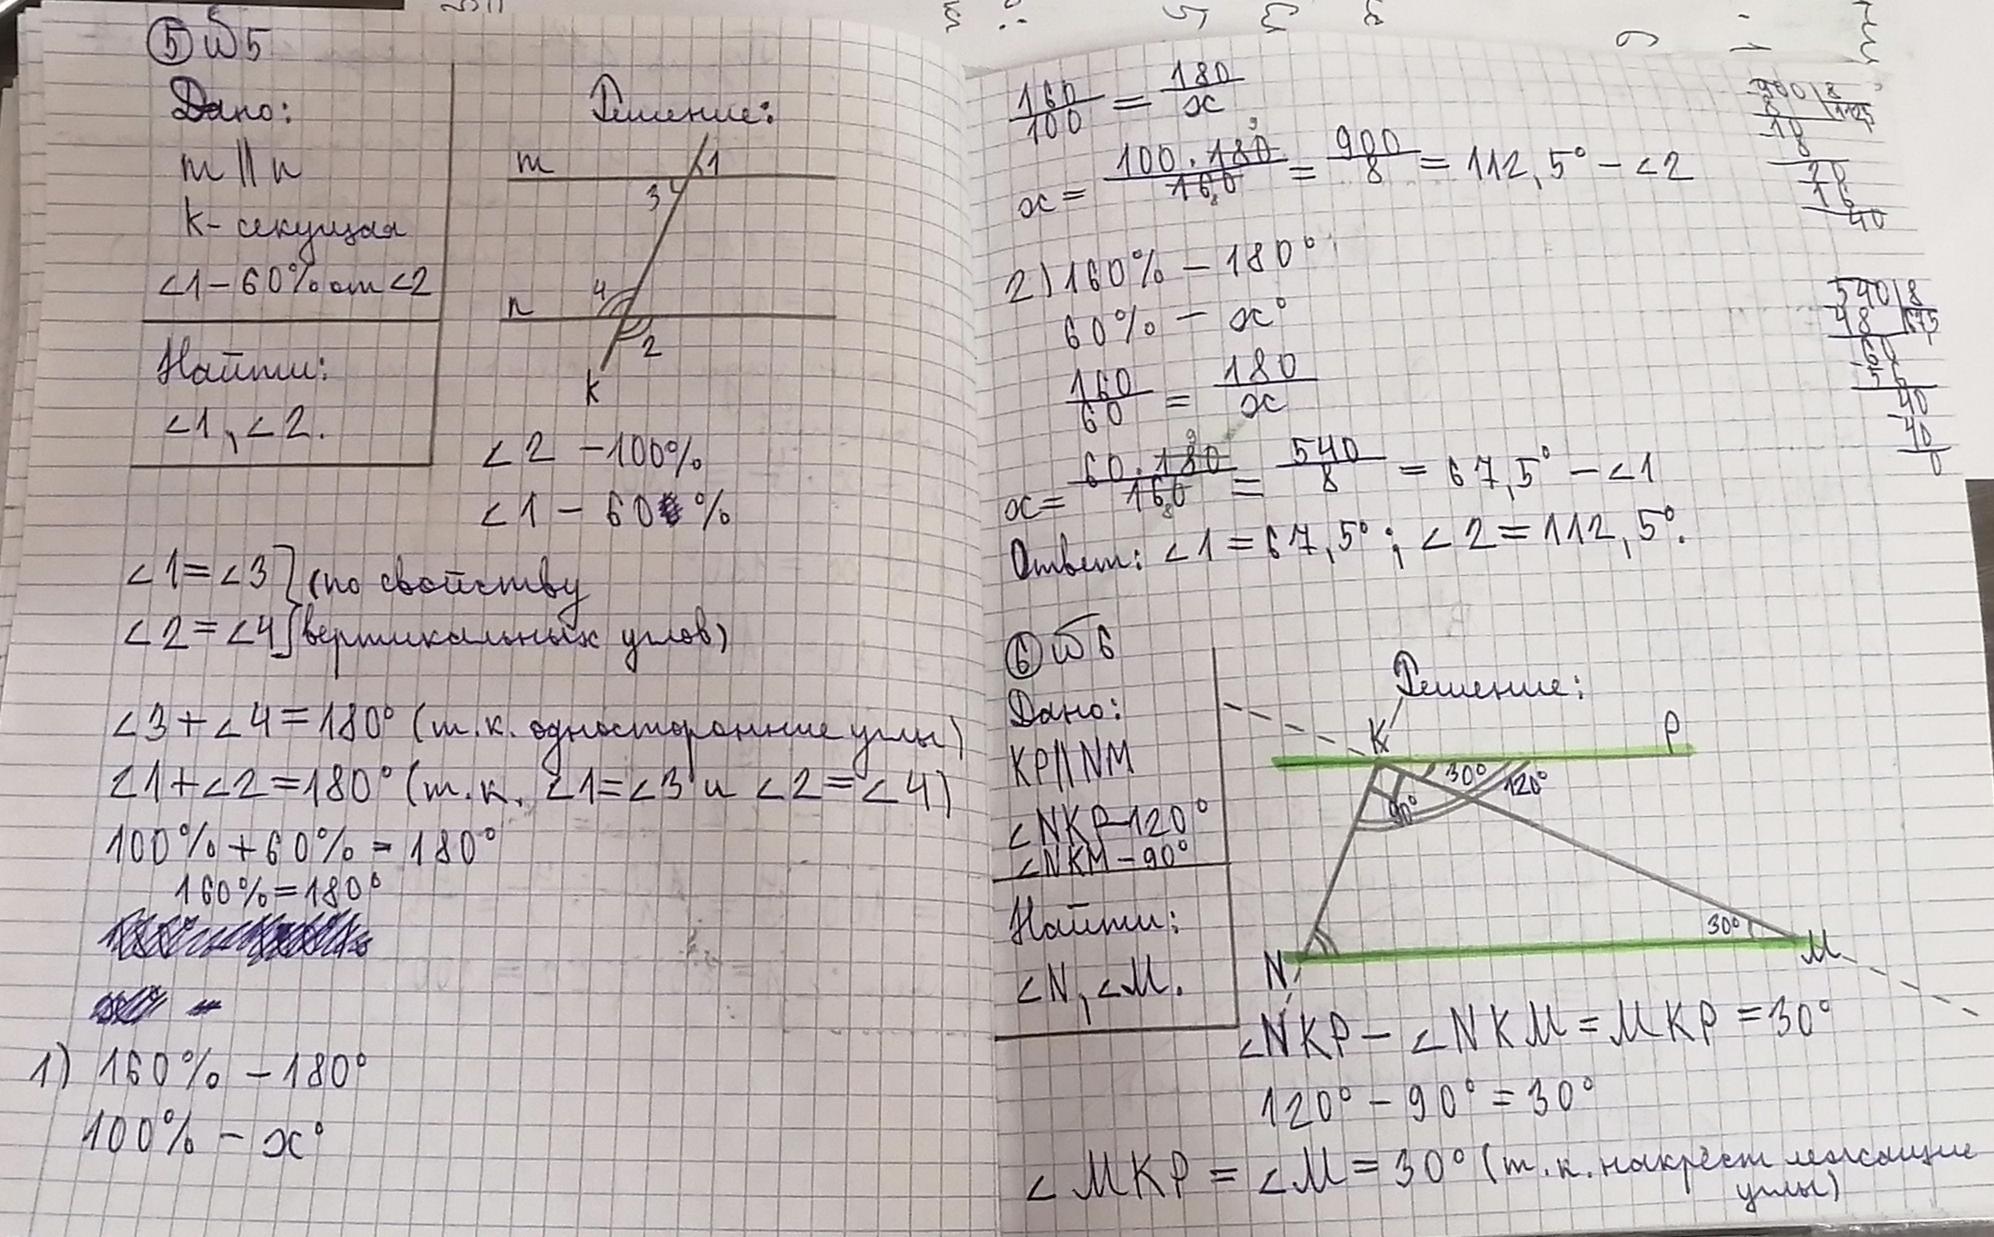 ⑤ №5
Дано:
m || n
k - секущая
∠1 – 60% от ∠2
Найти:
∠1, ∠2.
Решение:
m
1
3
4
n
2
k
∠2 – 100%
∠1 – 60 %
∠1 = ∠3 ] (по свойству
∠2 = ∠4 ] вертикальных углов)
∠3 + ∠4 = 180° (т.к. односторонние углы)
∠1 + ∠2 = 180° (т.к. ∠1 = ∠3 и ∠2 = ∠4)
100% + 60% – 180°
160% = 180°
1) 160% – 180°
100% – x°
160/100 = 180/x
x = 100 · 180/160 = 900/8 = 112,5° – ∠2
2) 160% – 180°
60% – x°
160/60 = 180/x
x = 60 · 180/160 = 540/8 = 67,5° – ∠1
Ответ: ∠1 = 67,5°; ∠2 = 112,5°.
900 8
8 1125
18
20
16
40
540 8
48 675
60
56
40
40
0
⑥ №6
Дано:
KP || NM
∠NKP – 120°
∠NKM – 90°
Найти:
∠N, ∠M.
Решение:
K
P
30°
120°
90°
30°
N
M
∠NKP – ∠NKM = MKP = 30°
120° – 90° = 30°
∠MKP = ∠M = 30° (т.к. накрест лежащие
углы)